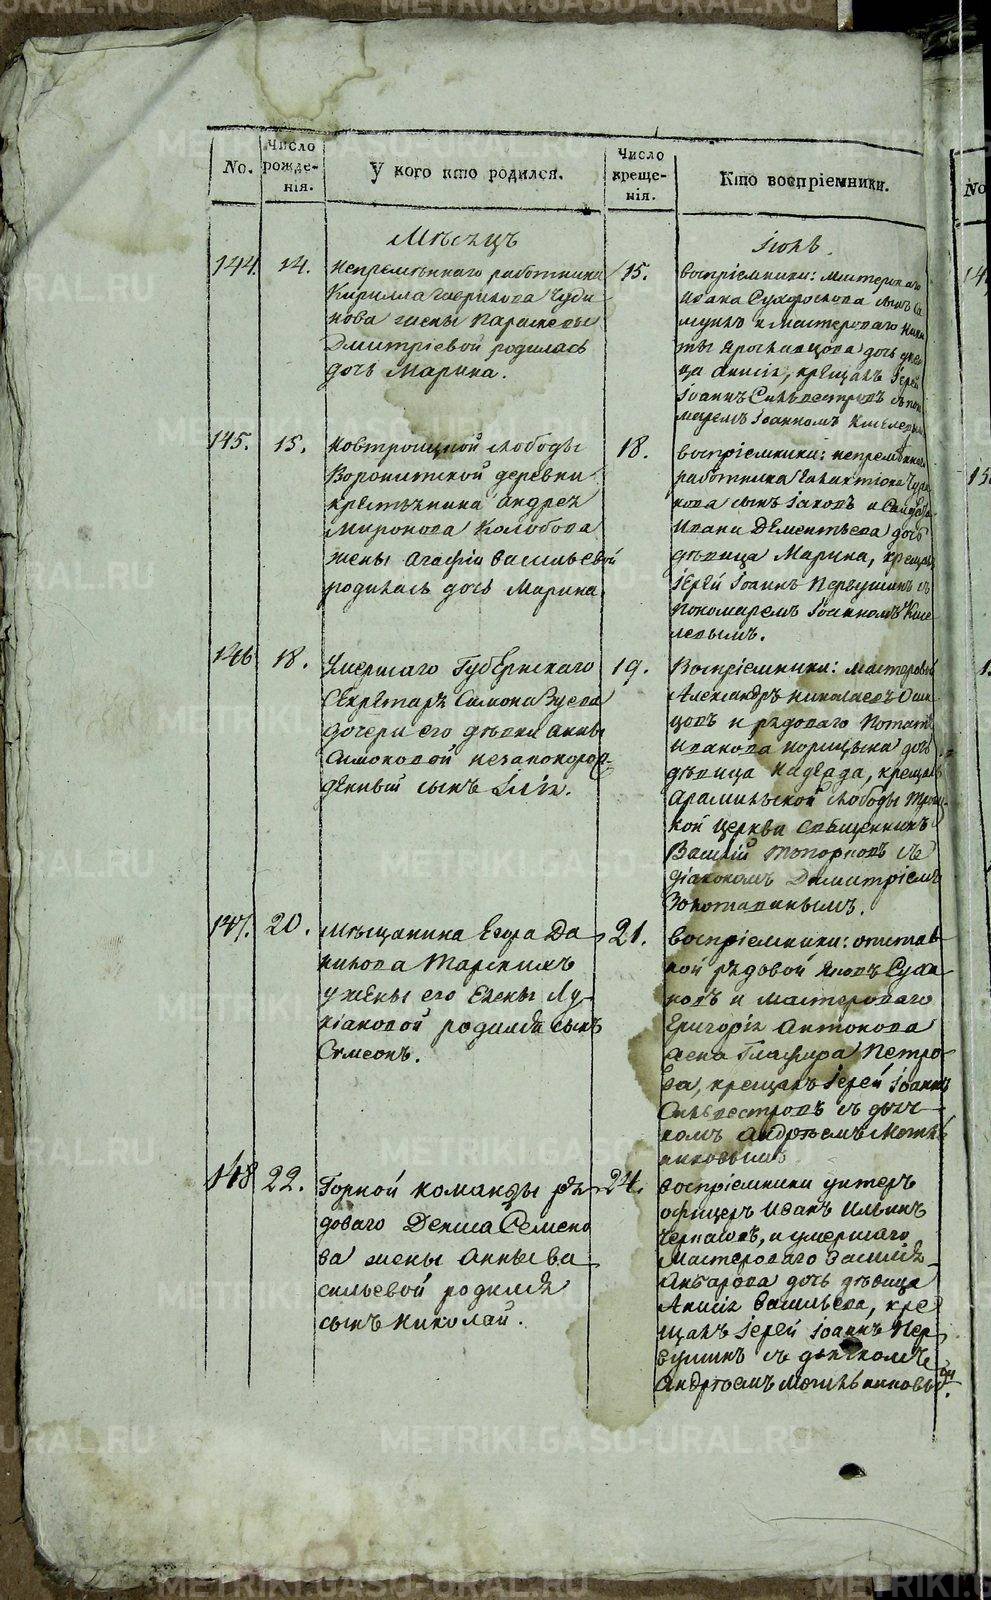 No.
Число рожденія.
У кого кто родился.
Число крещенія.
Кто воспріемники.
Мѣсяцъ
Іюль.
144.
14.
непремѣннаго работника
Кирилла Гаврилова Чуди
нова жены Параскевы
Дмитріевой родилась
дочь Марина.
15.
воспріемники: мастероваго
Ивана Сухороскова сынъ Са
муилъ и мастероваго Ники
ты Ярославцова дочь дѣви
ца Анисія, крещалъ Іерей
Іоаннъ Сильвестровъ съ поно
маремъ Іоанномъ Киселевымъ
145.
15.
Новтроицкой слободы
деревни
крестьянина Андрея
Миронова Колобова
жены Агафіи Васильевой
родилась дочь Марина.
18.
воспріемники: непремѣннаго
работника Галактіона Чуди
нова сынъ Іаковъ и
Ивана Дементьева дочь
дѣвица Марина, крещалъ
Іерей Іоаннъ Первушинъ съ
пономаремъ Іоанномъ Кисе
левымъ.
146
18.
Умершаго Губернскаго
Секретаря Симона Зуева
дочери его дѣвки Анны
Симоновой незаконорож
денный сынъ Илія.
19.
Воспріемники: мастеровый
Александръ Николаевъ
цовъ и рядоваго Потапа
Иванова Корицына дочь
дѣвица Надежда, крещалъ
Арамильской слободы Троиц
кой церкви священникъ
Василій Топорковъ съ
діакономъ Димитріемъ
Золотавинымъ.
147.
20.
мѣщанина Егора Да
нилова Тарскихъ
у жены его Елены Лу
кіановой родился сынъ
Сѵмеонъ.
21.
воспріемники: отстав
ной рядовой Яковъ Суха
новъ и мастероваго
Григорія Антонова
жена Глафира Петро
ва, крещалъ Іерей Іоаннъ
Сильвестровъ съ дьяч
комъ Андреемъ
148
22.
Горной команды ря
доваго Дениса Семено
ва жены Анны Ва
сильевой родился
сынъ Николай.
24.
воспріемники унтеръ
офицеръ Иванъ Ильинъ
Черпаковъ, и умершаго
мастероваго Василія
дочь дѣвица
Анисія Васильева, кре
щалъ Іерей Іоаннъ Пер
вушинъ съ дьячкомъ
Андреемъ
No
METRIKI.GASO-URAL.RU